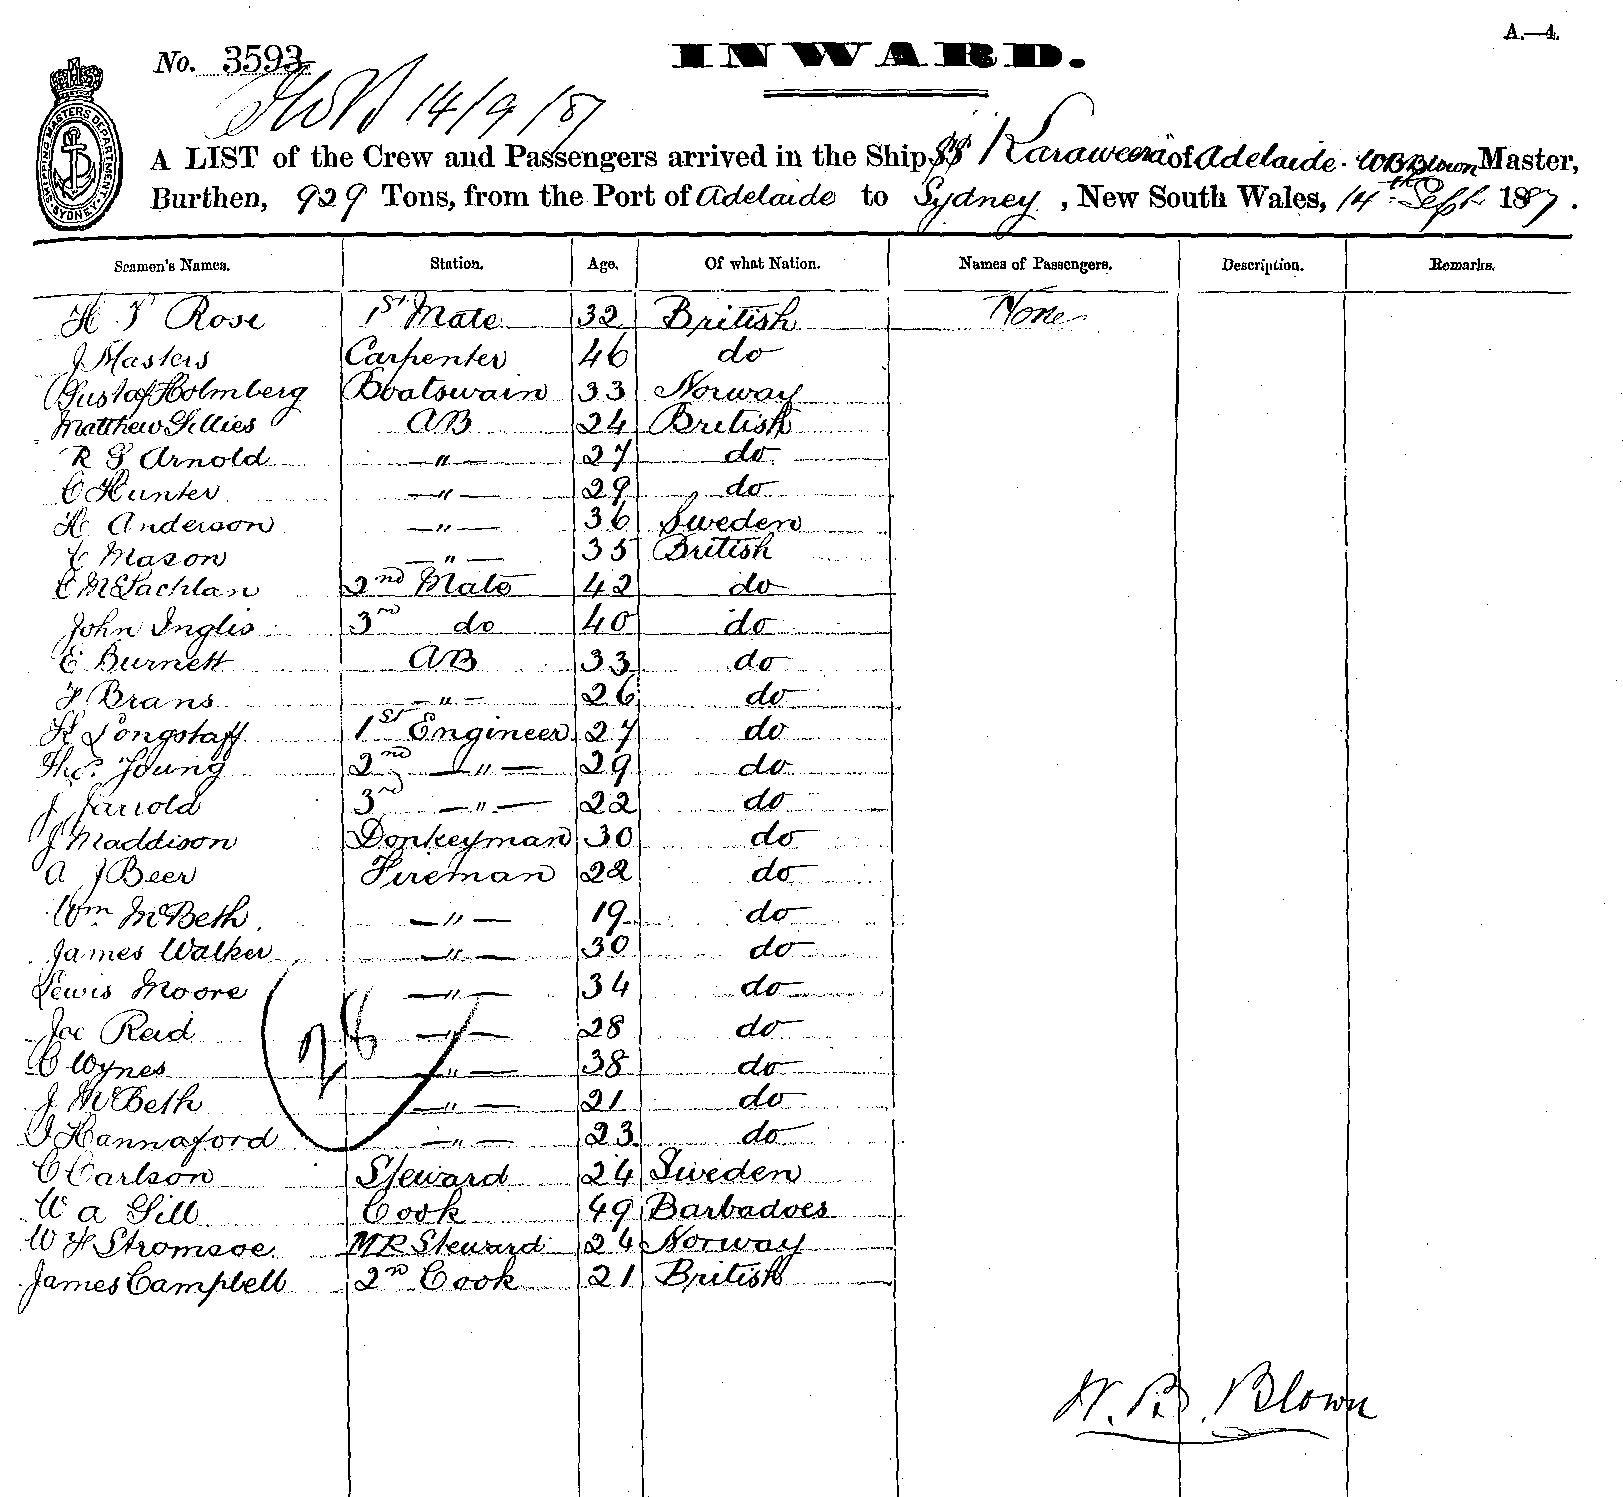 A.—4.
No. 3593
INWARD.
14/9/87
SHIPPING MASTERS DEPARTMENT SYDNEY
A LIST of the Crew and Passengers arrived in the Ship SS Karaweera of Adelaide. WB Blown Master,
Burthen, 929 Tons, from the Port of Adelaide to Sydney, New South Wales, 14th Sept 1887.
Seamen's Names. Station. Age. Of what Nation. Names of Passengers. Description. Remarks.
H. Rose 1st Mate 32 British None
J Masters Carpenter 46 do
Gustaf Holmberg Boatswain 33 Norway
Matthew Gillies AB 24 British
R G Arnold —"— 27 do
C Hunter —"— 29 do
H Anderson —"— 36 Sweden
C Mason —"— 35 British
C McLachlan 2nd Mate 42 do
John Inglis 3rd do 40 do
C Burnett AB 33 do
F Brans —"— 26 do
H Longstaff 1st Engineer 27 do
Thos. Young 2nd —"— 29 do
J Jarrold 3rd —"— 22 do
J Maddison Donkeyman 30 do
A J Beer Fireman 22 do
Wm McBeth —"— 19 do
James Walker —"— 30 do
Lewis Moore —"— 34 do
Joe Reid —"— 28 do
C Wynes —"— 38 do
J McBeth —"— 21 do
J Hannaford —"— 23 do
C Carlson Steward 24 Sweden
W a Gill Cook 49 Barbadoes
W F Stromsoe MR Steward 24 Norway
James Campbell 2nd Cook 21 British
28
W. B. Blown